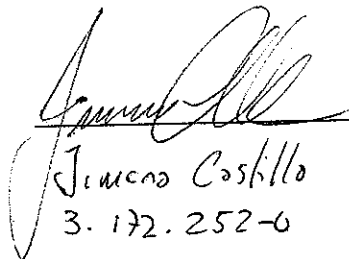 Jimena Castillo
3.172.252-0